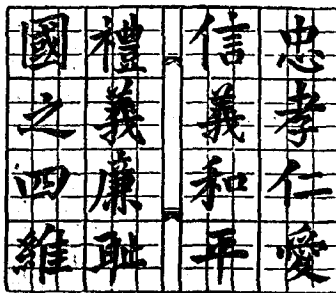 忠孝仁愛
信義和平
禮義廉耻
國之四維